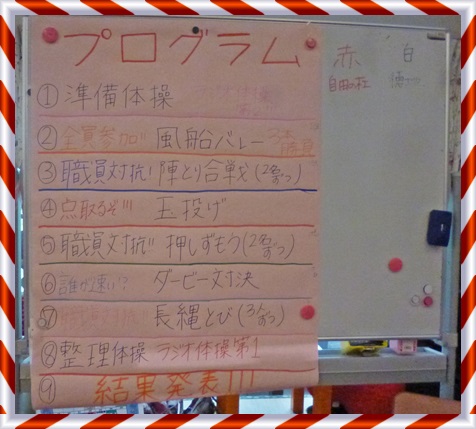 プログラム
①準備体操
②全員参加!! 風船バレー
③職員対抗! 陣とり合戦(2名ずつ)
④点取るぞ!!! 玉投げ
⑤職員対抗!! 押しずもう(2名ずつ)
⑥誰が速い? ダービー対決
⑦ 長縄とび(3人ずつ)
⑧整理体操 ラジオ体操第1
⑨ 結果発表!!!
赤 白
自由の杜